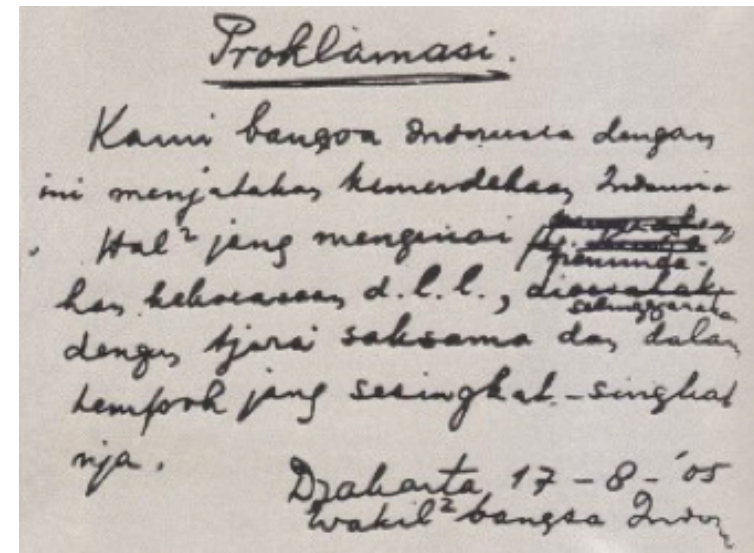 Proklamasi.
Kami bangsa Indonesia dengan
ini menjatakan kemerdekaan Indonesia
Hal² jang mengenai
pemindahan
kekoeasaan d.l.l.,
diselenggarakan
dengan tjara saksama dan dalam
tempoh jang sesingkat-singkat
nja.
Djakarta, 17-8-'05
Wakil² bangsa Indon